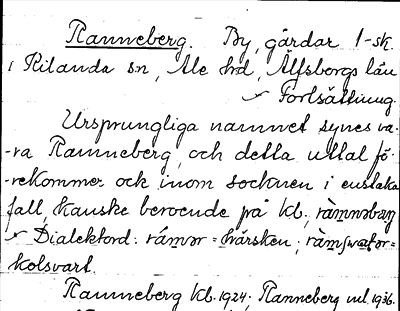 Ranneberg. By, gårdar 1-sk.
i Kilanda sn, Ale hd, Älfsborgs län
× Fortsättning.
Ursprungliga namnet synes va-
-ra Ramneberg, och detta uttal fö-
-rekommer ock inom socknen i enstaka
fall, kanske beroende på kl.; ràmnəbærj
× Dialektord: rámər = härsken,
kolsvart.
Ramneberg kb. 1924; Ranneberg utl. 1936.